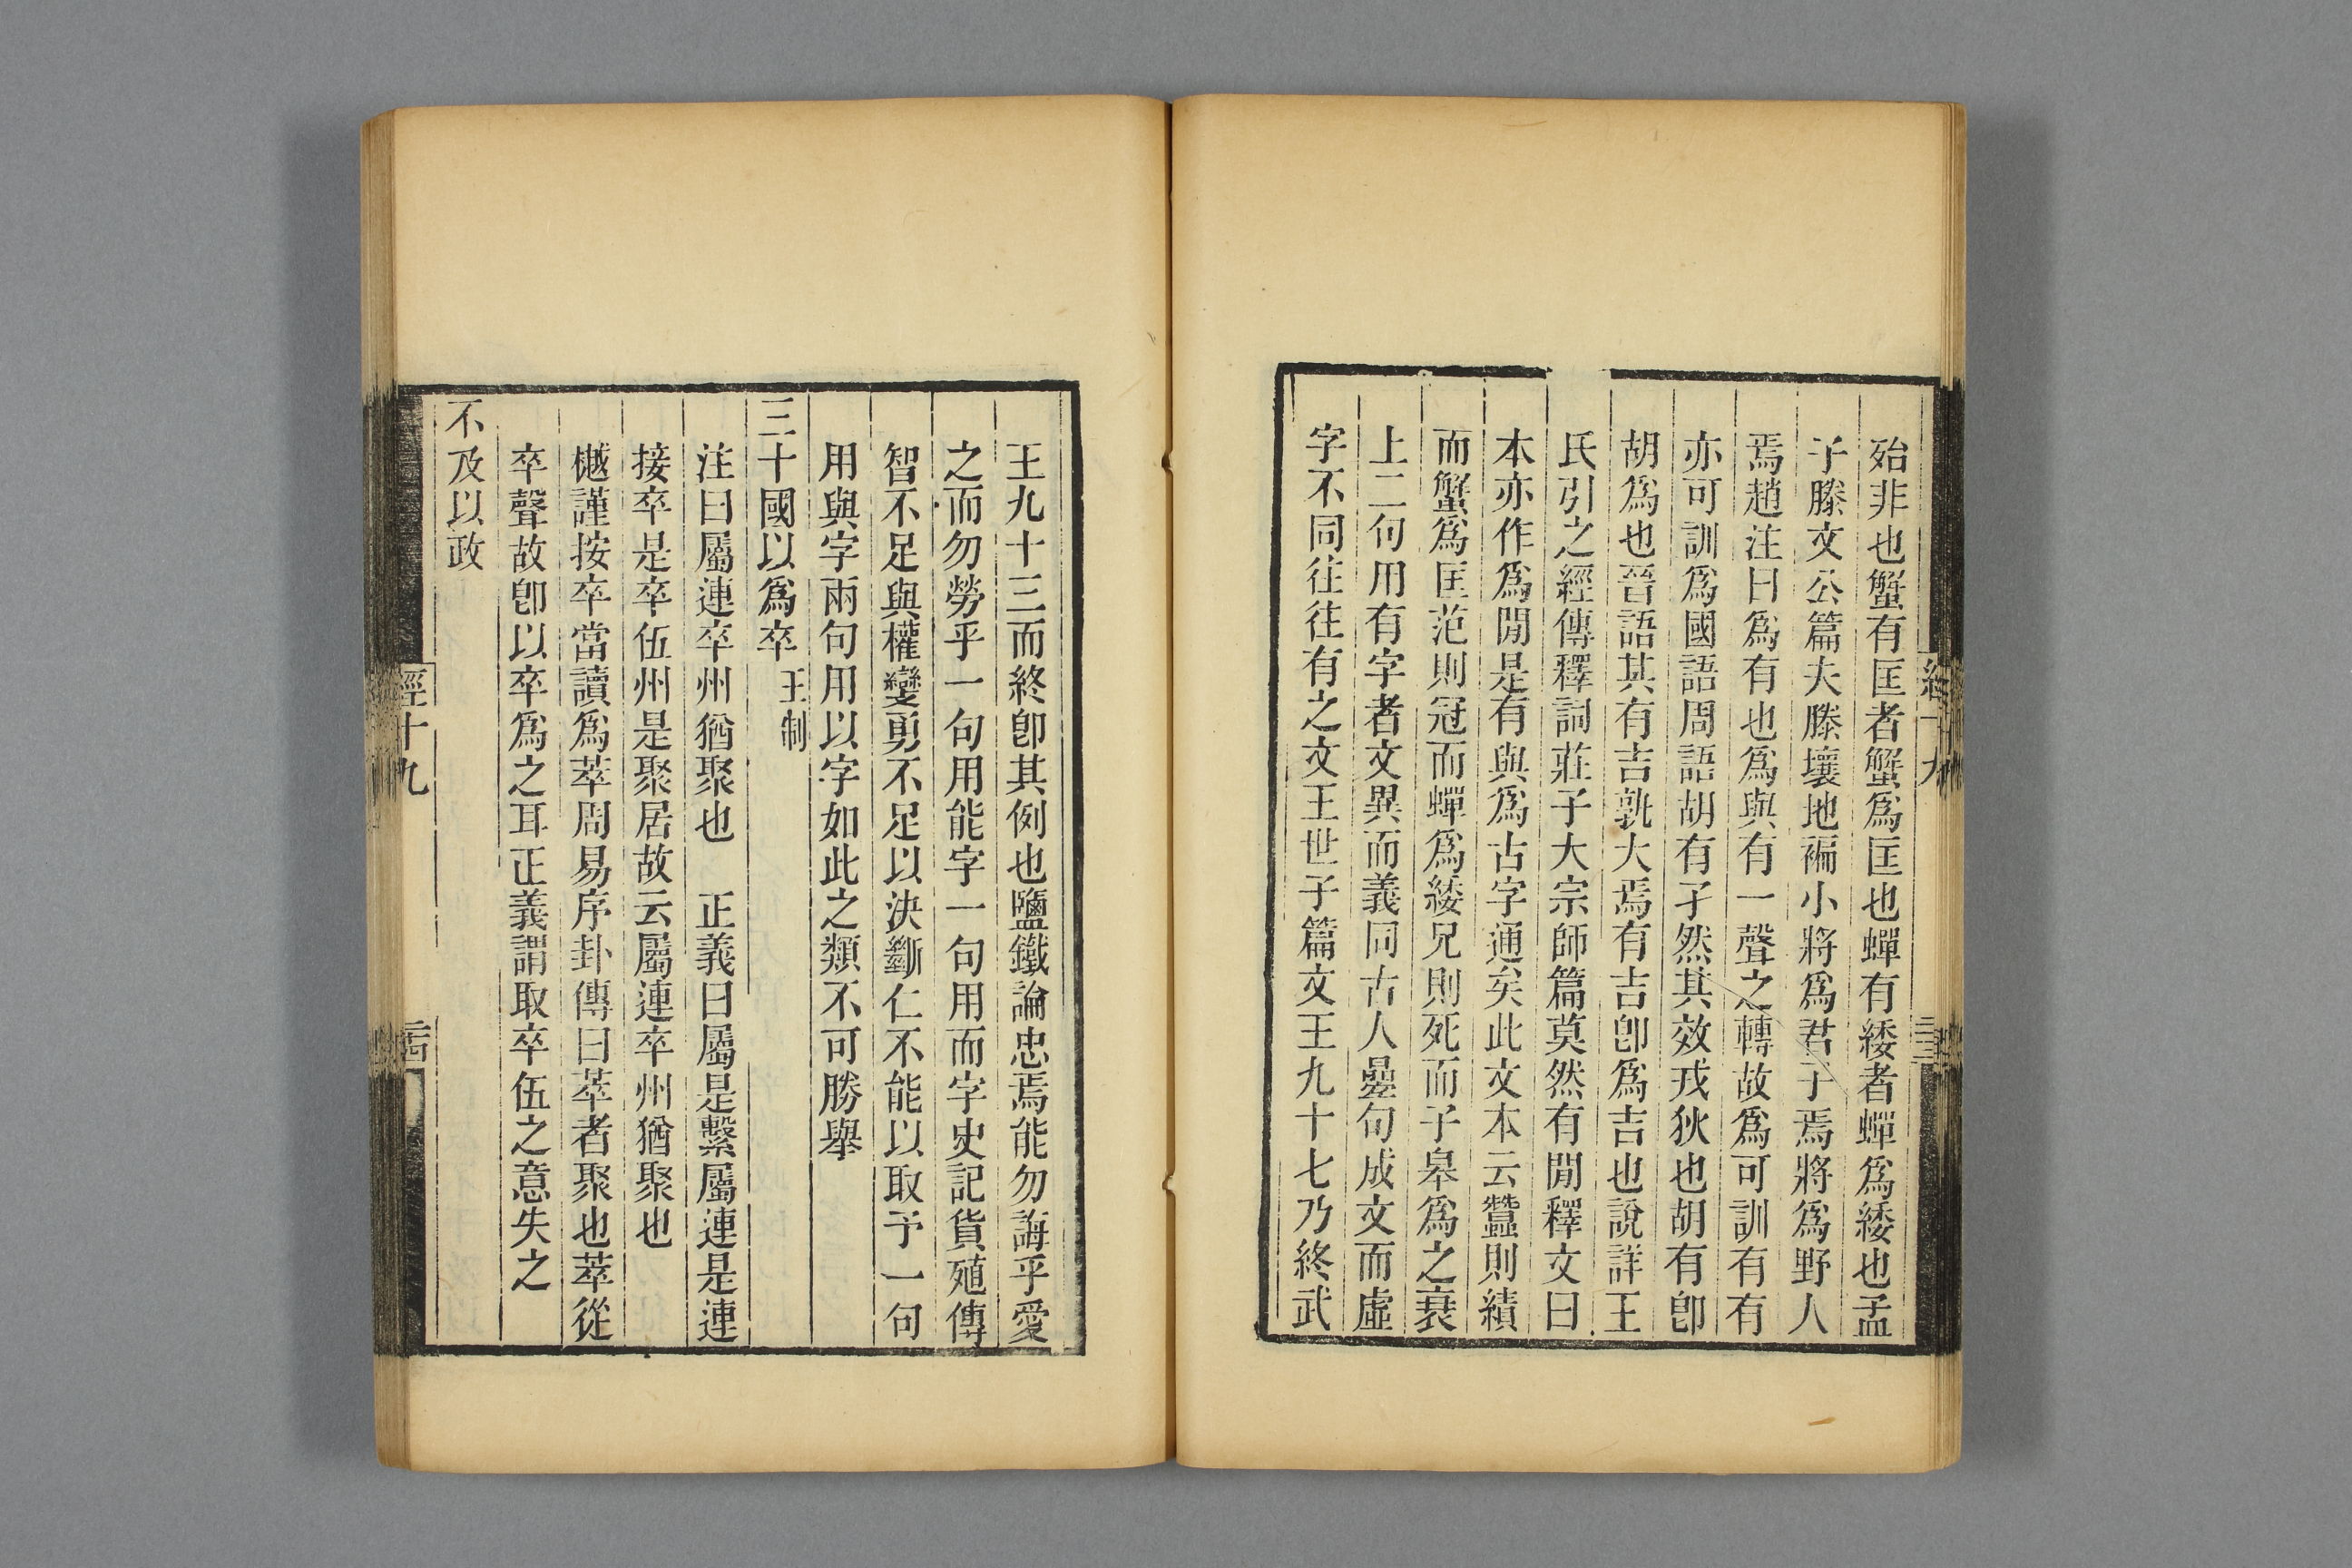 殆非也蟹有匡者蟹爲匡也蟬有緌者蟬爲緌也孟
子滕文公篇夫滕壤地褊小將爲君子焉將爲野人
焉趙注曰爲有也爲與有一聲之轉故爲可訓有有
亦可訓爲國語周語胡有孑然其效戎狄也胡有卽
胡爲也晉語其有吉孰大焉有吉卽爲吉也說詳王
氏引之經傳釋詞莊子大宗師篇莫然有閒釋文曰
本亦作爲閒是有與爲古字通矣此文本云蠶則績
而蟹爲匡范則冠而蟬爲緌兄則死而子皋爲之衰
上二句用有字者文異而義同古人曡句成文而虛
字不同往往有之文王世子篇文王九十七乃終武
王九十三而終卽其例也鹽鐵論忠焉能勿誨乎愛
之而勿勞乎一句用能字一句用而字史記貨殖傳
智不足與權變勇不足以決斷仁不能以取予一句
用與字兩句用以字如此之類不可勝舉
三十國以爲卒 王制
注曰屬連卒州猶聚也 正義曰屬是繫屬連是連
接卒是卒伍州是聚居故云屬連卒州猶聚也
樾謹按卒當讀爲萃周易序卦傳曰萃者聚也萃從
卒聲故卽以卒爲之耳正義謂取卒伍之意失之
不及以政
經十九